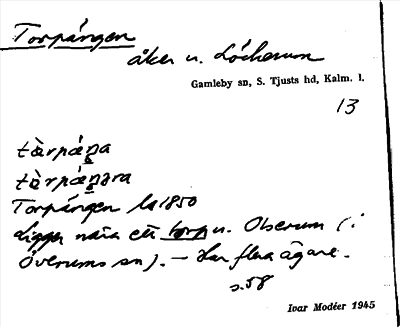 Torpängen
åker u. Löckerum
Gamleby sn, S. Tjusts hd, Kalm. l.
13
tòrpǽŋa
tòrpǽŋəra
Torpängen la 1850
Ligger nära ett torp u. Olserum (i
Överums sn). – Har flera ägare.
s. 58
Ivar Modéer 1945